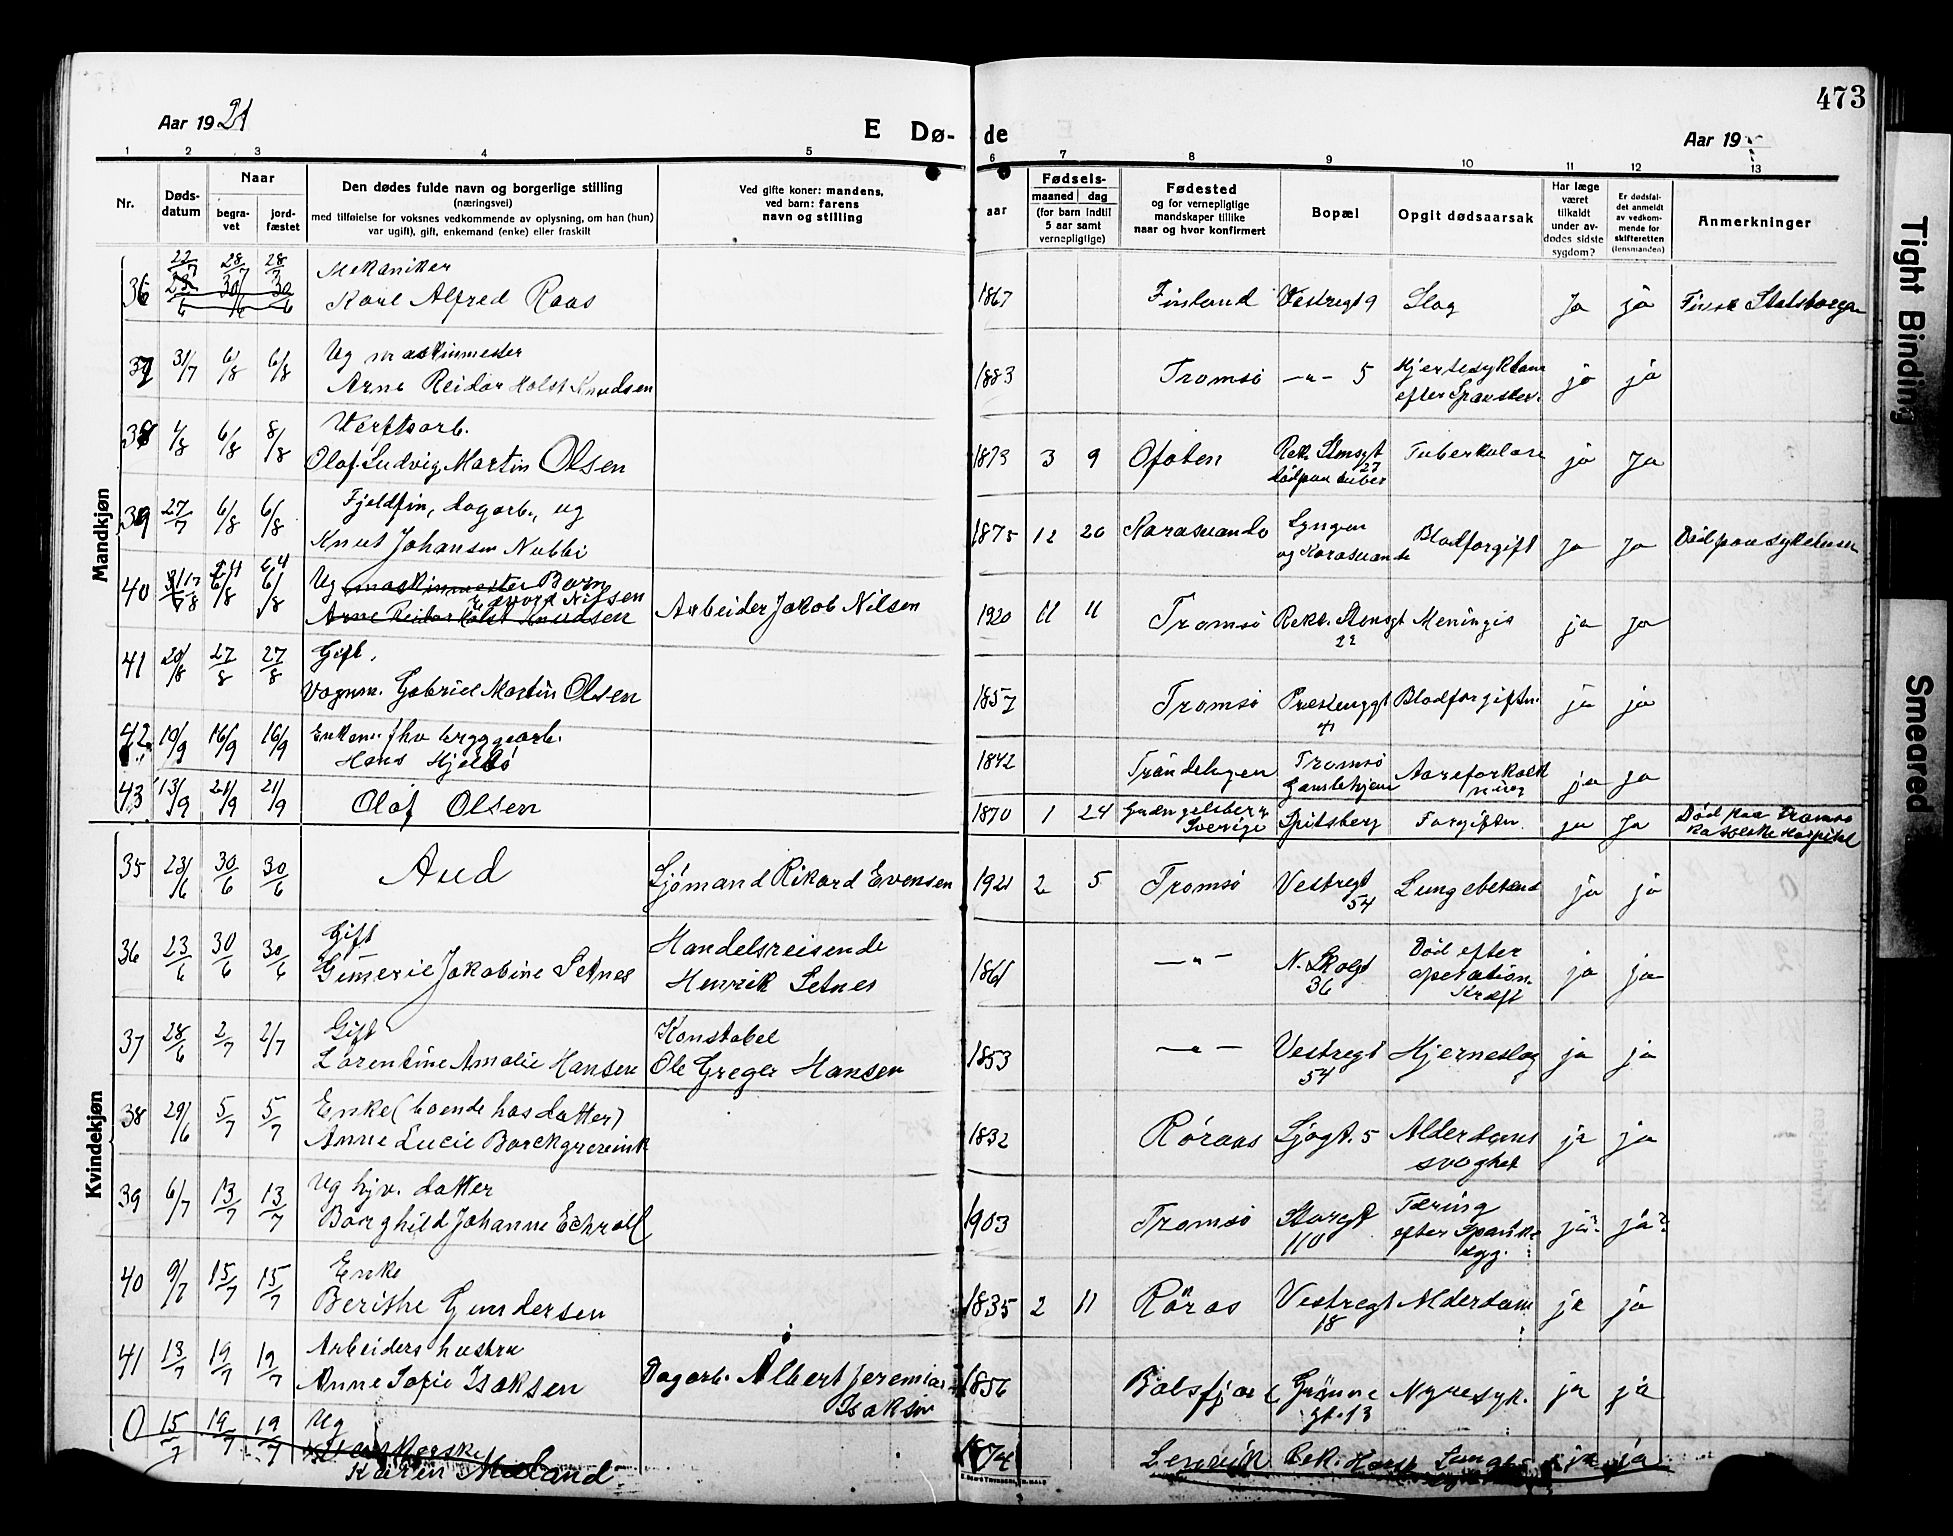 473
Aar 1921
E Dø-
de
Aar 19
1 2 3 4 5 6 7 8 9 10 11 12 13
Nr.
Døds-
datum
Naar
begra-
vet
jord-
fæstet
Den dødes fulde navn og borgerlige stilling
(næringsvei)
med tilføielse for voksnes vedkommende av oplysning, om han (hun)
var ugift, gift, enkemand (enke) eller fraskilt
Ved gifte koner: mandens,
ved barn: farens
navn og stilling
aar
Fødsels-
maaned dag
(for barn indtil
5 aar samt
vernepligtige)
Fødested
og for vernepligtige
mandskaper tillike
naar og hvor konfirmert
Bopæl
Opgit dødsaarsak
Har læge
været
tilkaldt
under av-
dødes sidste
sygdom?
Er dødsfal-
det anmeldt
av vedkom-
mende for
skifteretten
(lensmanden)
Anmerkninger
Mandkjøn
22/7 28/7 28/7
Mekaniker
36 30/6 30/6 Karl Alfred Raas 1867 Finland Vestregt 9 Slag Ja ja Finsk
Ug maskinmester
37 31/7 6/8 6/8 Arne Reidar Holst Knudsen 1883 Tromsø -"- 5 Hjertesykdom ja ja
efter
Verftsarb.
38 4/8 6/8 8/8 Olaf Ludvig Martin Olsen 1873 3 9 Ofoten Rek. Stensgt 27 Tuberkulose ja Ja
Fjeldfin, dagarb., ug
39 27/7 6/8 6/8 Knut Johansen Nubbi 1875 12 20 Karasuando Lyngen Blodforgift Ja Ja Död paa sykehuset
og Karasuando
40 6/8 6/8 Ug maskinmester Barn
Edvard Nilsen
Arne Reidar Holst Knudsen Arbeider Jakob Nilsen 1920 11 11 Tromsø Rekr. Stensgt Meningis ja Ja
22
Gift,
41 20/8 27/8 27/8 Vognm. Gabriel Martin Olsen 1857 Tromsø Prestenggt Blodforgiftn. ja ja
42 10/9 16/9 16/9 Enkem. fhv bryggearb.
Hans 1842 Tröndelagen Tromsø Aareforkalk ja Ja
Gamlehjem ning
43 13/9 21/9 21/9 Olaf Olsen 1870 1 24 Spitsberg Forgiftn. ja Ja Död paa Tromsø
Sverige Katolske Hospital
Kvindekjøn
35 23/6 30/6 30/6 Aud Sjömand Rikard Evensen 1921 2 5 Tromsø Vestregt Lungebetend ja ja
54
Gift Handelsreisende Død efter
36 23/6 30/6 30/6 Gimerie Jakobine Setnes Henrik Setnes 1861 -"- N. Skolgt operation. ja ja
36 Kræft
Gift Konstabel
37 28/6 2/7 2/7 Lorentine Amalie Hansen Ole Greger Hansen 1853 -"- Vestregt Hjerneslag ja ja
54
38 29/6 5/7 5/7 Enke (boende hos datter)
Anne Lucie Borchgrevink 1832 Röraas Sjøgt. 5 Alderdoms ja ja
svaghet
Ug hjv. datter
39 6/7 13/7 13/7 Borghild Johanne Echroll 1903 Tromsø Storgt Tæring ja? ja?
110 efter Spanske
syg.
Enke
40 9/7 15/7 15/7 Berithe Gundersen 1835 2 11 Röros Vestregt Alderdom ja ja
18
Arbeiders hustru
41 13/7 19/7 19/7 Anne Sofie Isaksen Dagarb. Albert Jeremias 1856 Balsfjord Grönne Nyresyk. ja ja
Isaksen gt. 13
0 15/7 19/7 19/7 Ug
Karen Mæland 1874 Lenvik Rek. Lunge ja ja
Tight Binding
Smeared